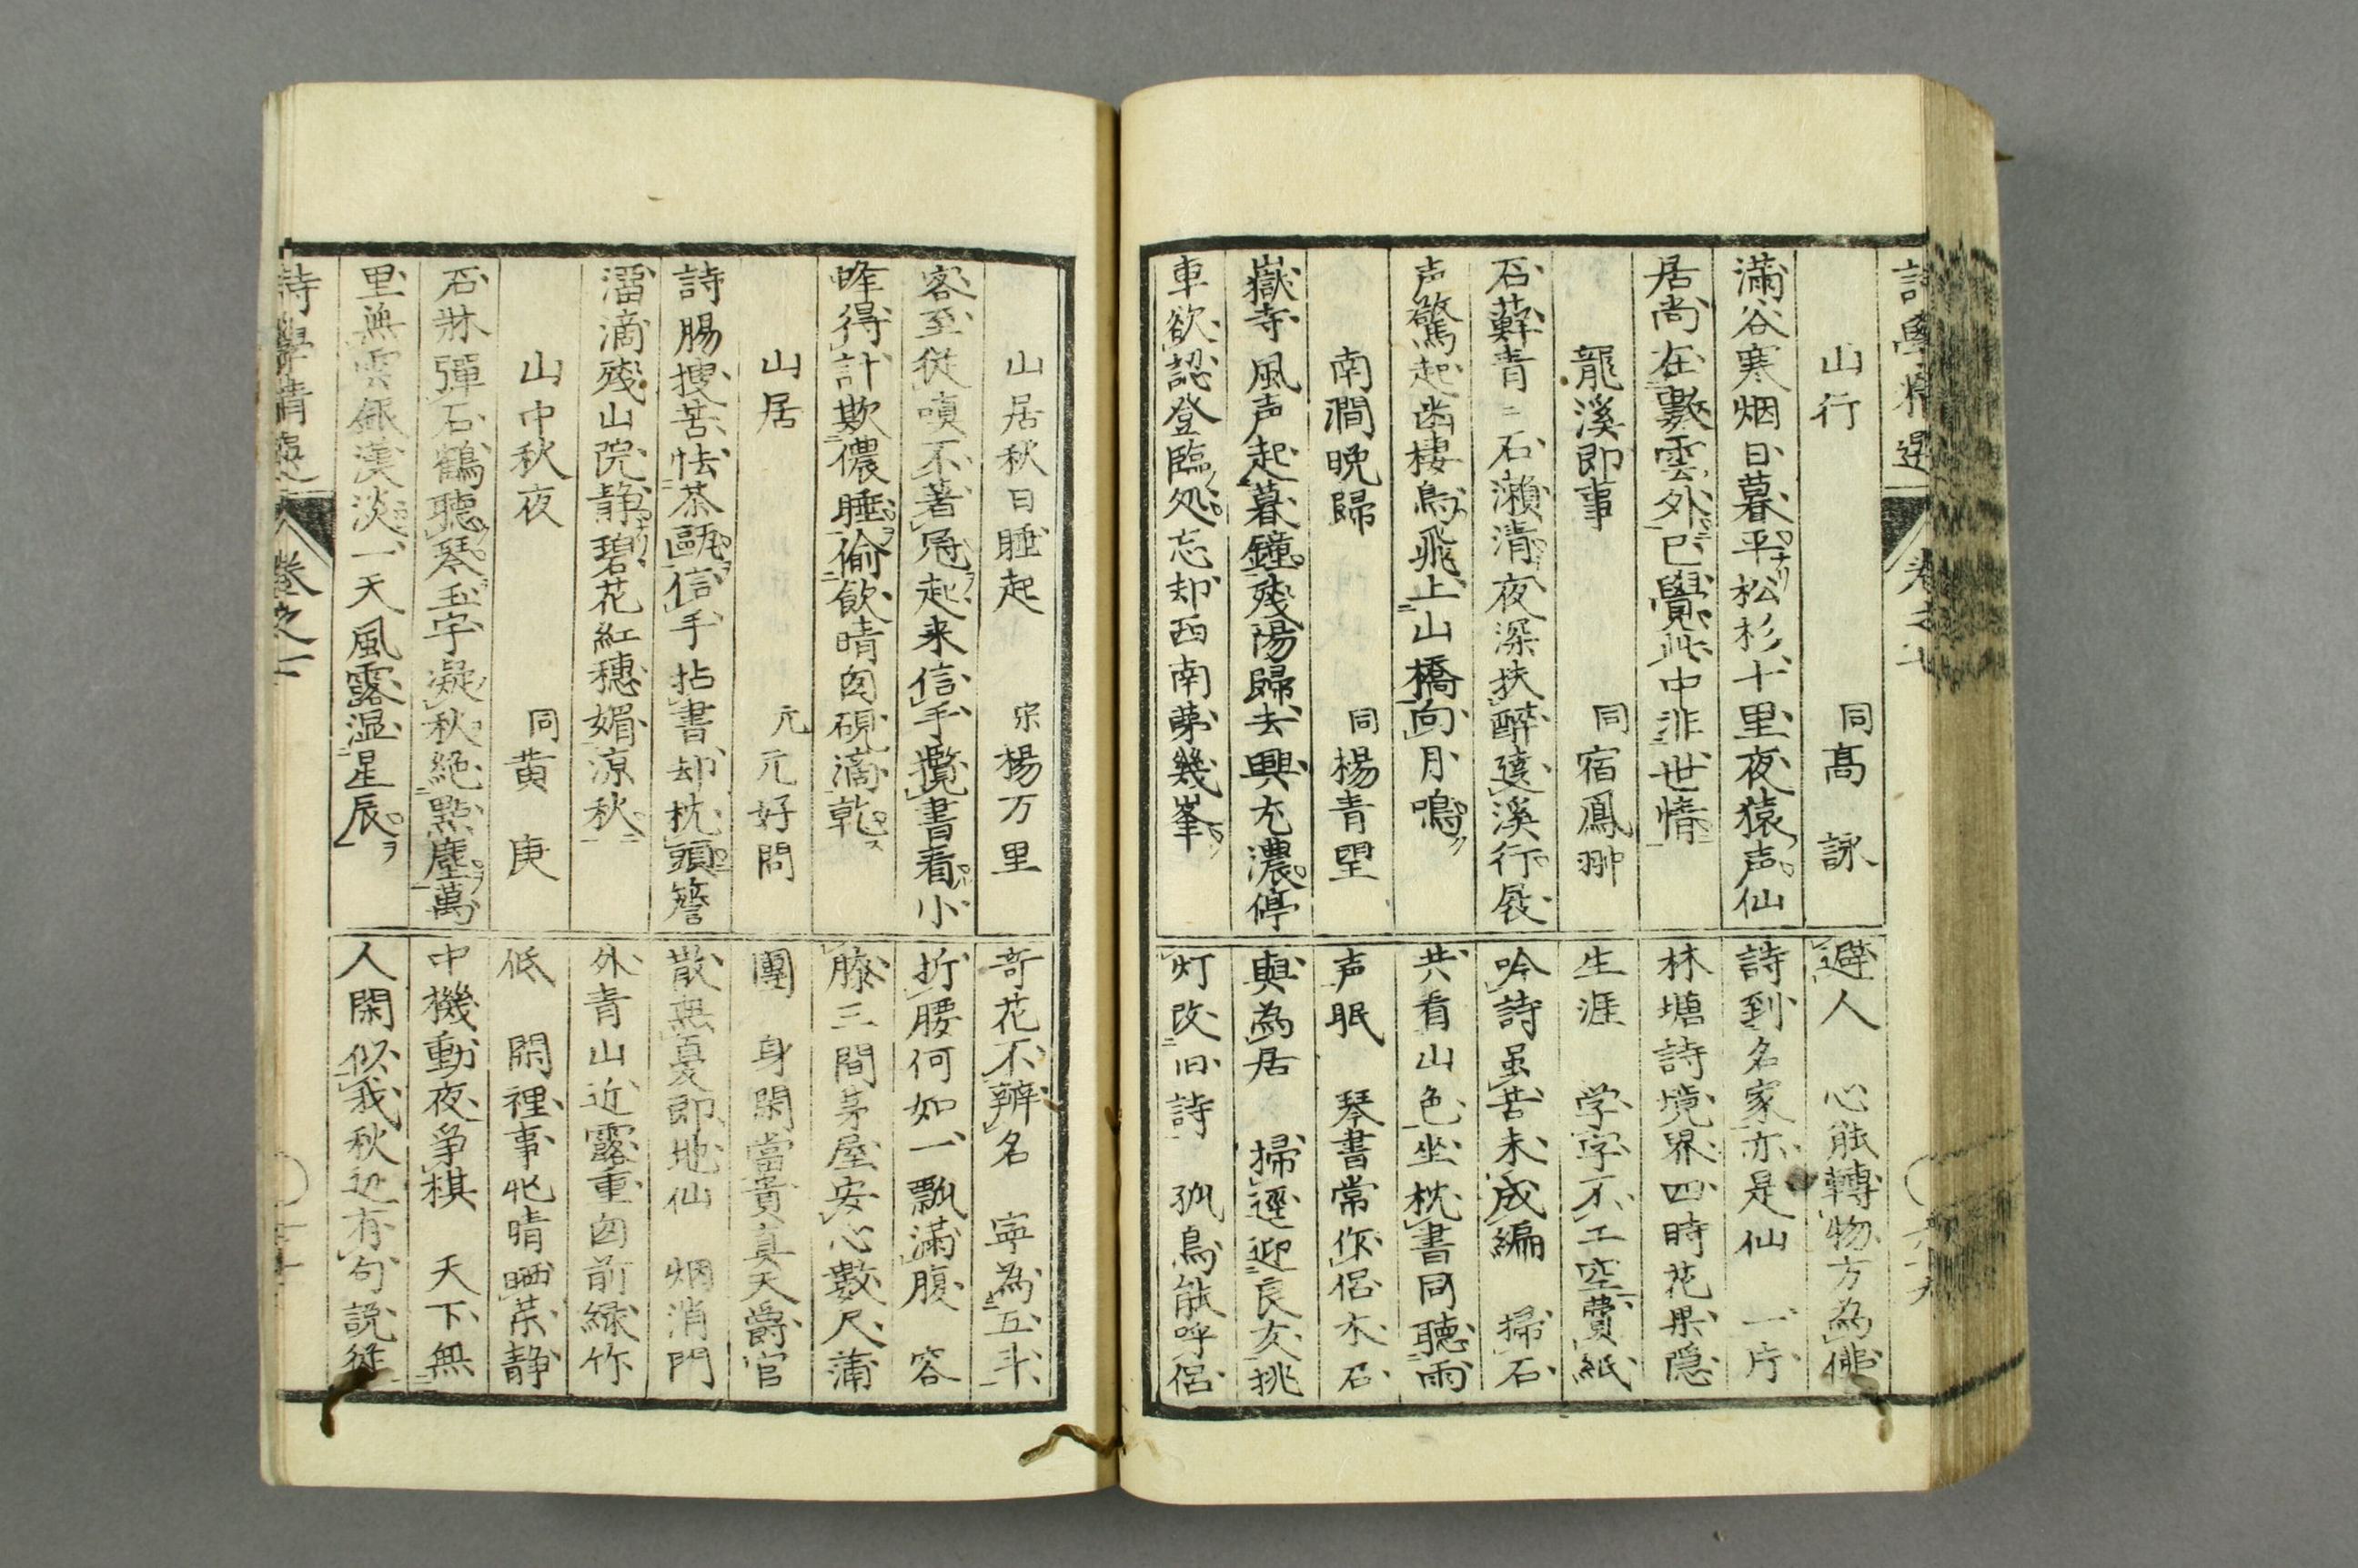 山行 同高 詠
滿谷寒烟日暮平松杉十里夜猿声仙
居尚在數雲外已覺此中非世情
龍溪即事 同宿鳳翀
石蘚青〻石瀬清夜深扶醉遶溪行屐
声驚起幽棲鳥飛上山橋向月鳴
南澗晩歸 同楊青望
嶽寺風声起暮鐘殘陽歸去興尤濃停
車欲認登臨処忘却西南第幾峯
避人 心能轉物方為佛
詩到名家亦是仙 一片
林塘詩境界四時花果隠
生涯 学字不工空費紙
吟詩虽苦未成編 掃石
共看山色坐枕書同聴雨
声眠 琴書常作侶木石
與為居 掃逕迎良友挑
灯改旧詩 孤鳥能呼侶
山居秋日睡起 宋楊万里
客至從嗔不著冠起来信手攬書看小
蜂得計欺儂睡偷飲晴囱硯滴乾
山居 元元好問
詩腸搜苦怯茶甌信手拈書却枕頭簷
溜滴殘山院静碧花紅穗媚凉秋
山中秋夜 同黄 庚
石牀彈石鶴聽琴玉宇凝秋絶點塵萬
里無雲銀漢淡一天風露湿星辰
詩學精選 卷之一
奇花不辨名 寧為五斗
折腰何如一瓢滿腹 容
膝三間茅屋安心數尺蒲
團 身閑當貴真天爵官
散無憂即地仙 烟消門
外青山近露重囱前緑竹
低 閑裡事忙晴晒藥静
中機動夜争棋 天下無
人閑似我秋近有句説從